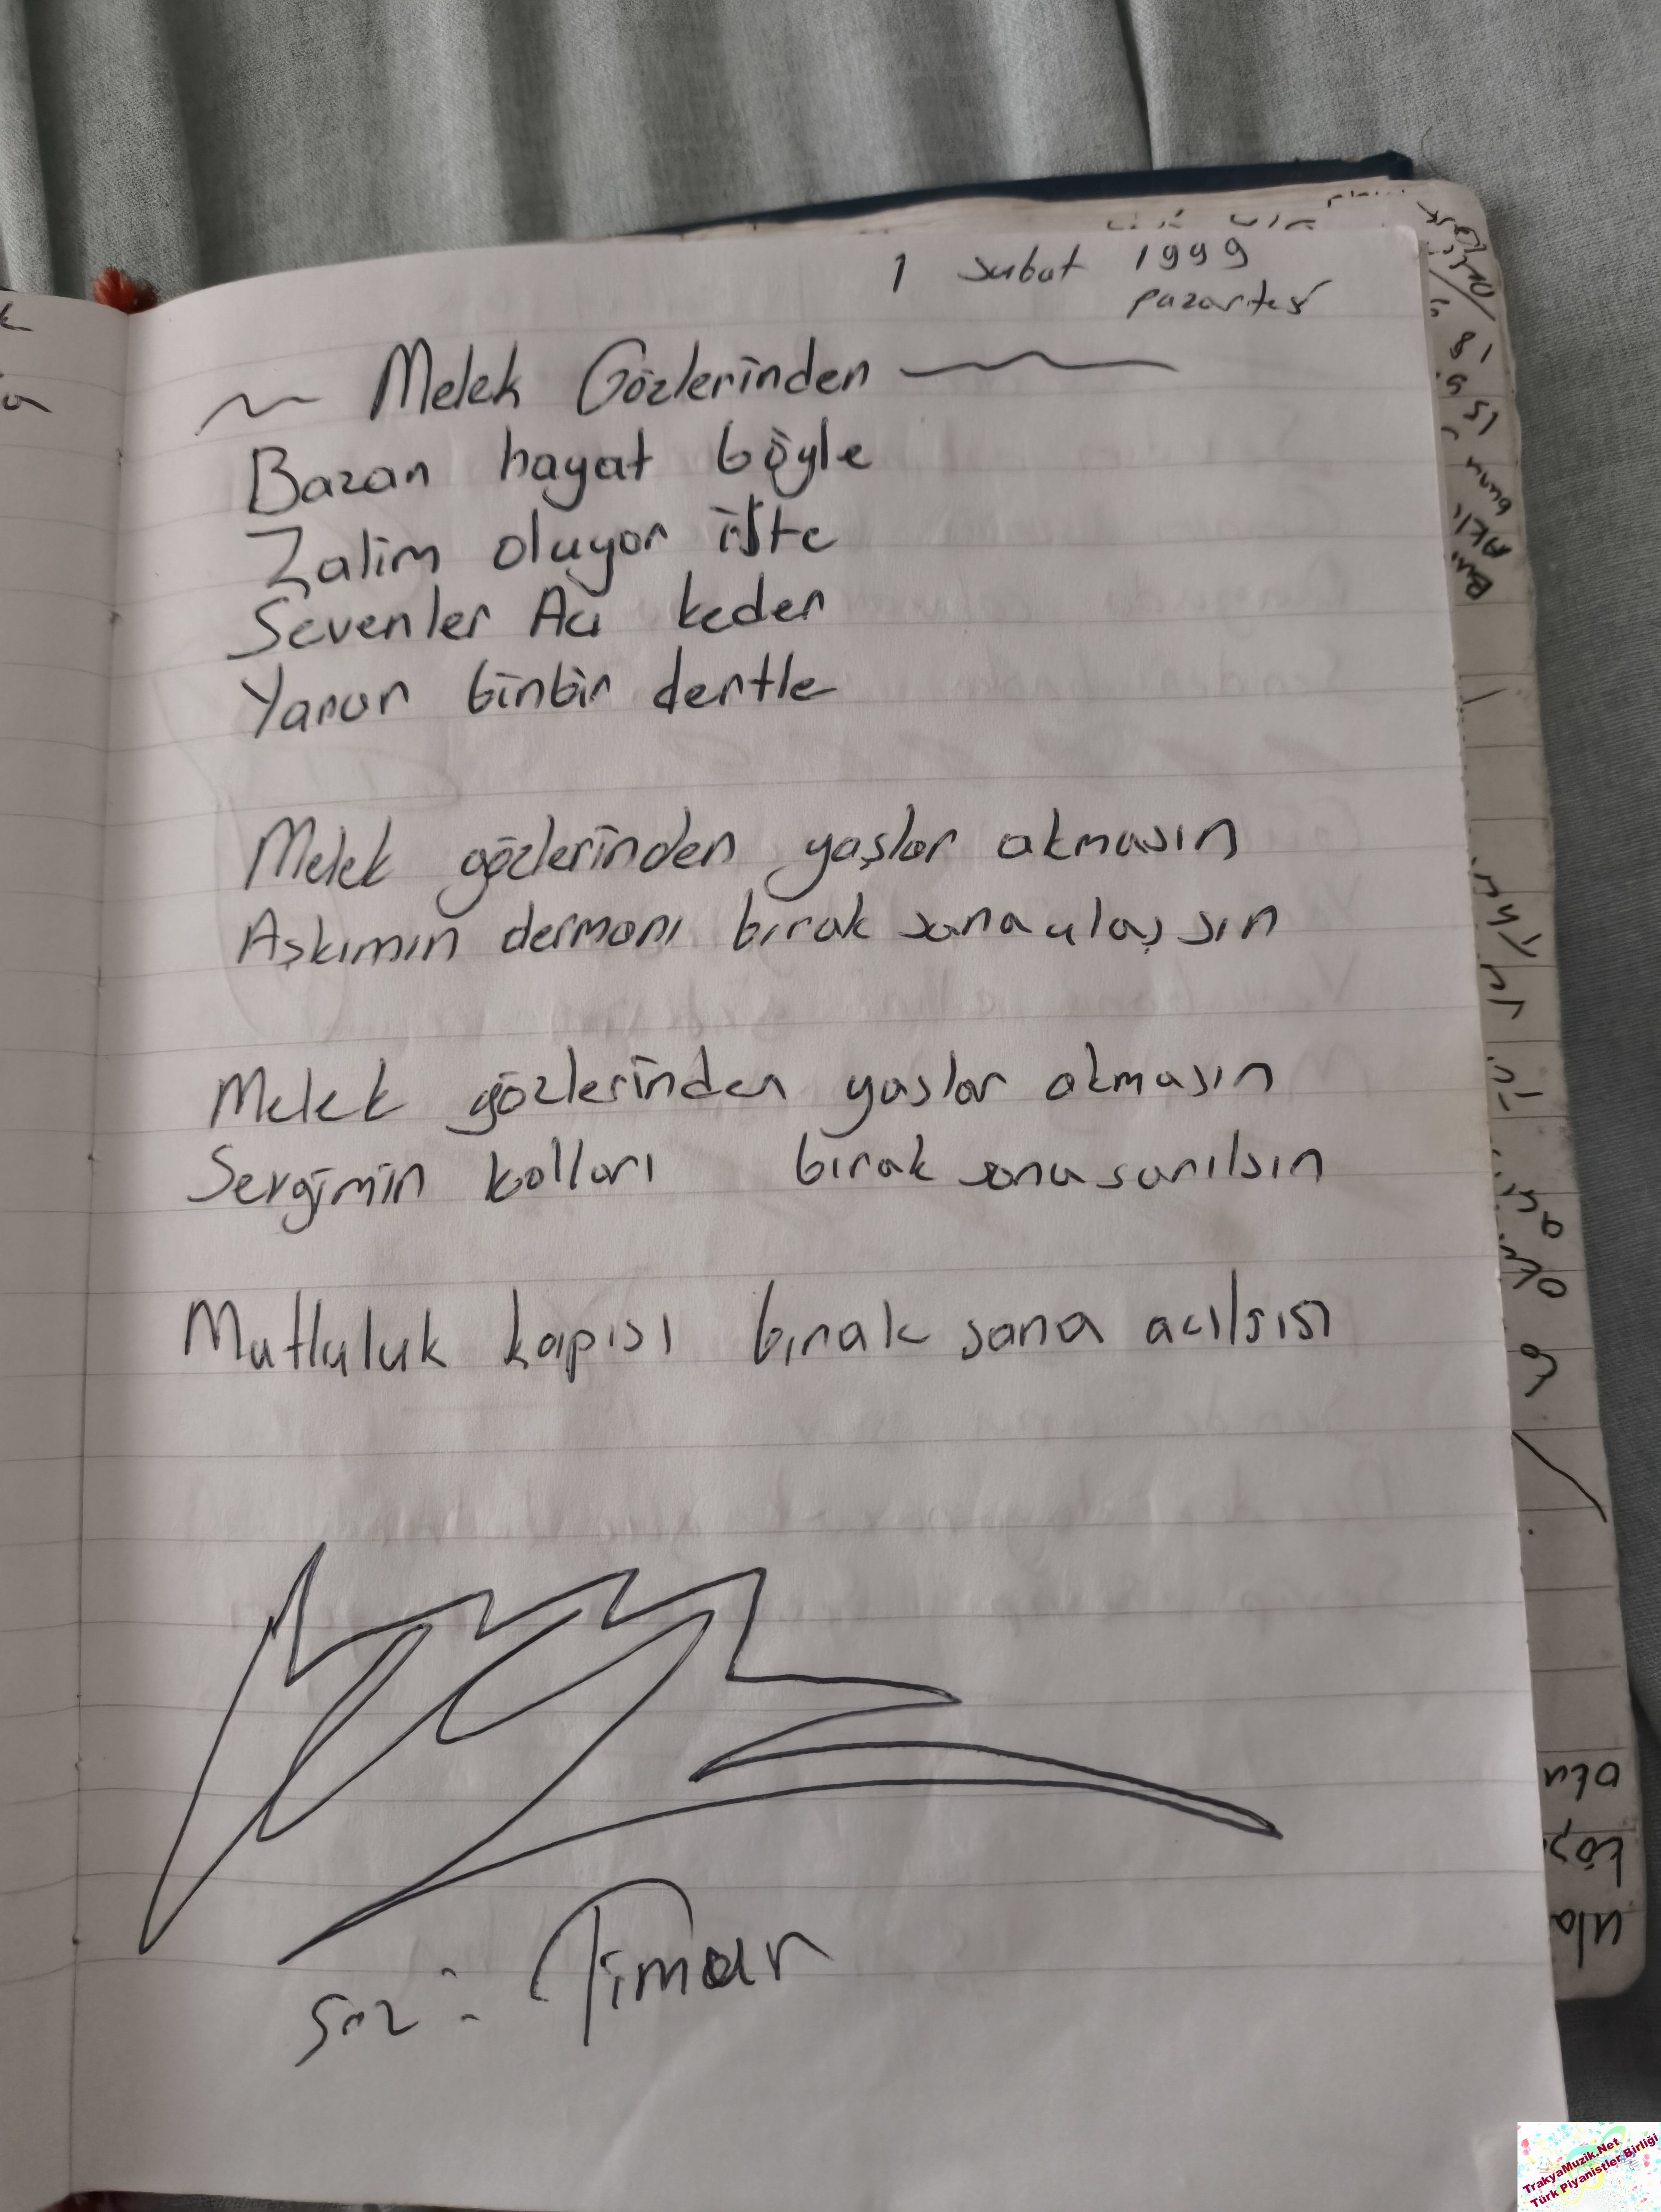 1 Şubat 1999
pazartesi
Melek Gözlerinden
Bazan hayat böyle
Zalim oluyor işte
Sevenler Acı keder
Yanar binbir dertle
Melek gözlerinden yaşlar akmasın
Aşkımın dermanı bırak sana ulaşsın
Melek gözlerinden yaslar akmasın
Sevgimin kolları bırak sana sarılsın
Mutluluk kapısı bırak sana acılsısı
Söz: Timar
TrakyaMuzik.Net
Türk Piyanistler Birliği